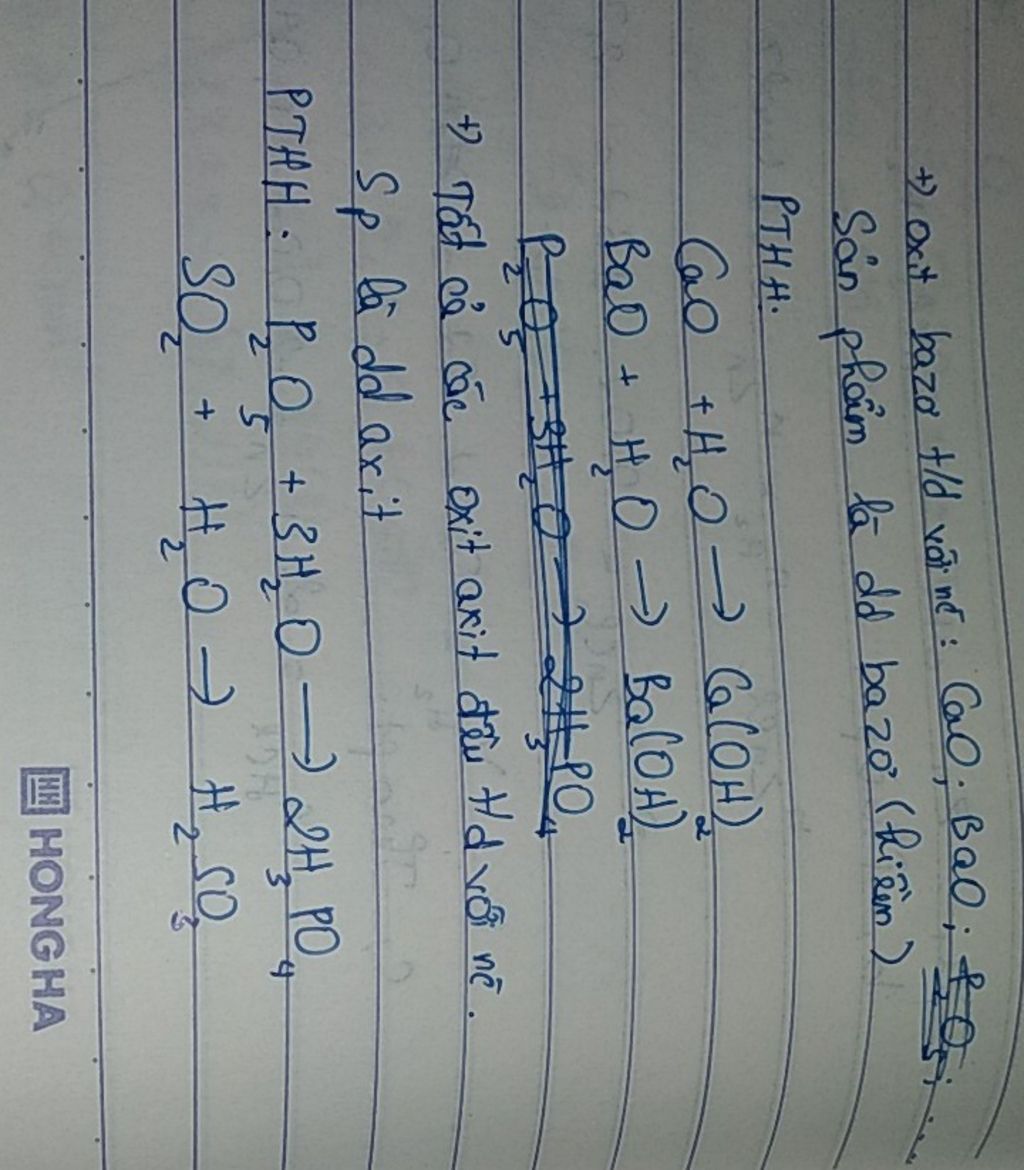 +) oxit bazơ t/d với nc: CaO; BaO; P2O5; ...
Sản phẩm là dd bazơ (kiềm)
PTHH:
CaO + H2O → Ca(OH)2
BaO + H2O → Ba(OH)2
P2O5 + 3H2O → 2H3PO4
+) Tất cả các oxit axit đều t/d với nc.
Sp là dd axit
PTHH: P2O5 + 3H2O → 2H3PO4
SO2 + H2O → H2SO3
HONG HA